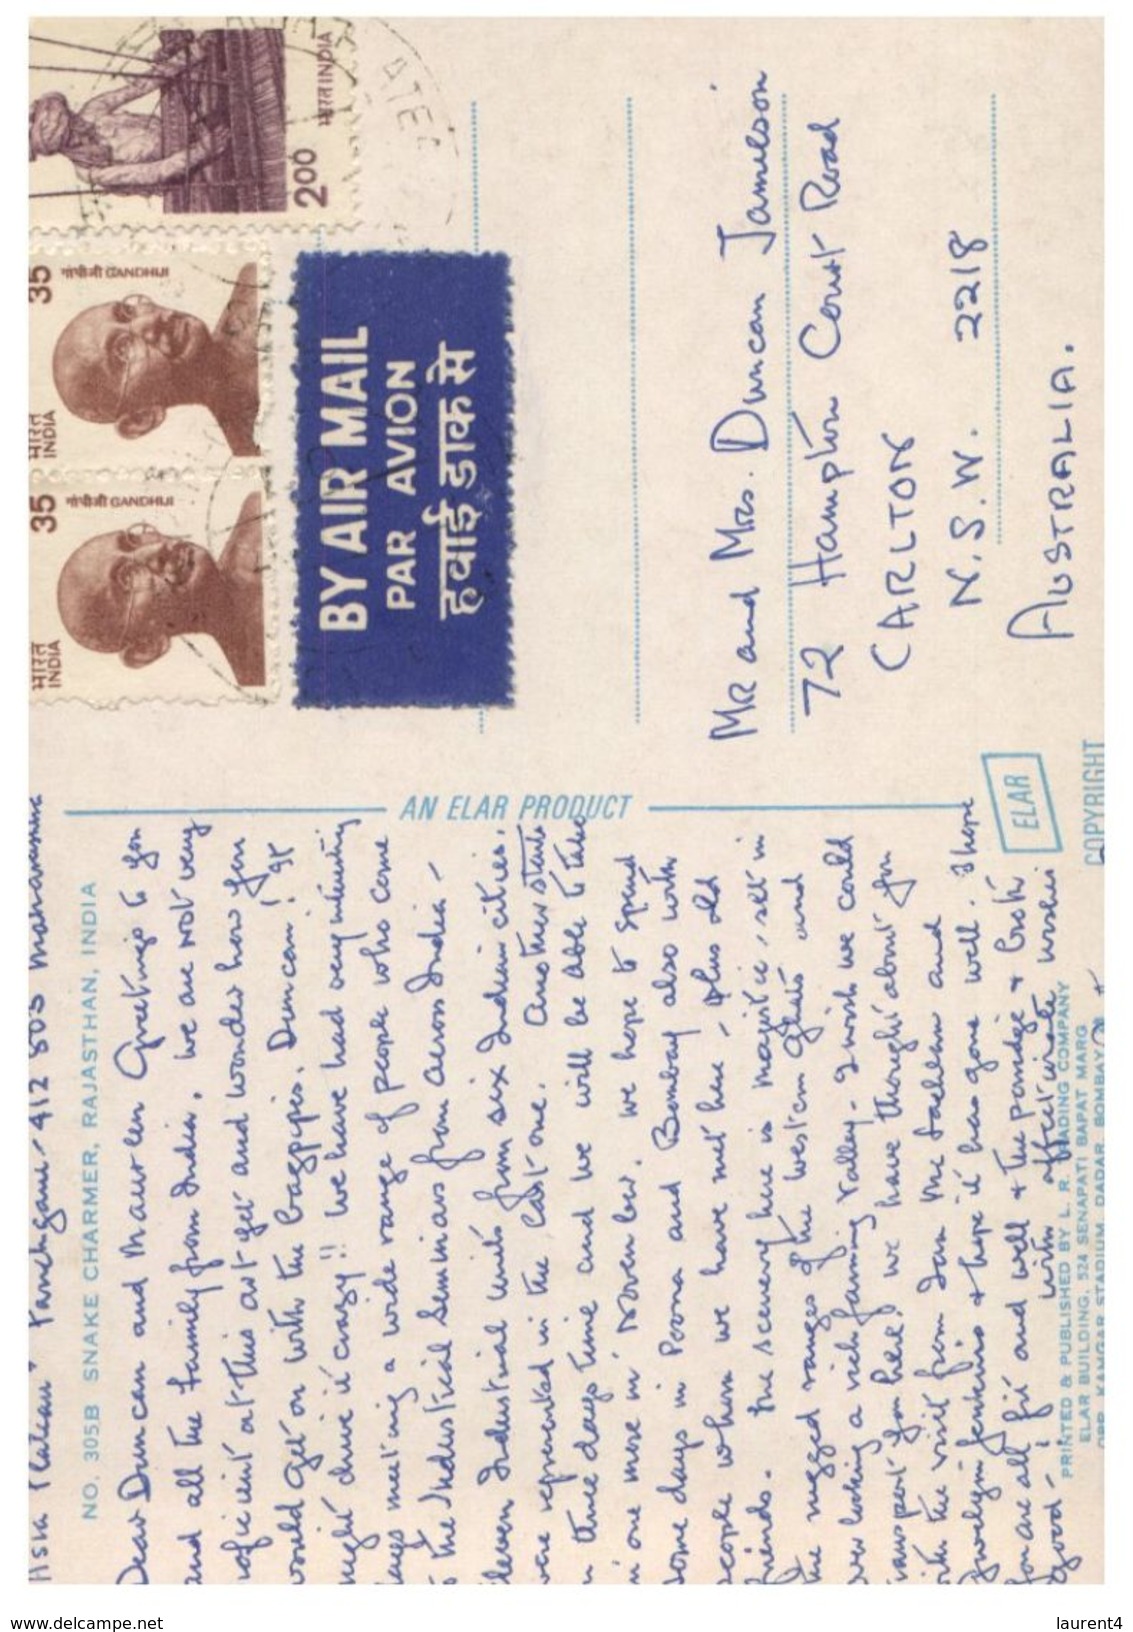 Asia Plateau Panchgani 412 805 Maharashtra
NO. 305B SNAKE CHARMER, RAJASTHAN, INDIA
Dear Duncan and Maureen Greetings to you
and all the family from India. We are NOT very
proficient at this art yet and wonder how you
would get on with the bagpipes, Duncan! It
might drive it crazy!! We have had very interesting
days meeting a wide range of people who come
to the Industrial Seminars from across India -
Eleven Industrial Units from six Indian cities.
were represented in the last one. Another starts
in three days time and we will be able to take
in one more in November. We hope to spend
some days in Poona and Bombay also with
people whom we have met here, plus old
friends. The scenery here is majestic, set in
the rugged ranges of the Western Ghats and
over looking a rich farming valley. I wish we could
transport you here! We have thought about you
with the visit from Ian and
Gwelym Jenkins & hope it has gone well. I hope
you are all fit and well & the porridge & both
good - ! With affectionate wishes
PRINTED & PUBLISHED BY L. R. TRADING COMPANY
ELAR BUILDING, 524 SENAPATI BAPAT MARG
OPP. KAMGAR STADIUM, DADAR, BOMBAY
AN ELAR PRODUCT
ELAR
COPYRIGHT
भारत INDIA
35
गांधीजी GANDHIJI
भारत INDIA
35
गांधीजी GANDHIJI
2.00
भारत INDIA
BY AIR MAIL
PAR AVION
हवाई डाक से
MR and Mrs. Duncan Jamieson
72 Hampton Court Road
CARLTON
N.S.W. 2218
AUSTRALIA.
www.delcampe.net
laurent4